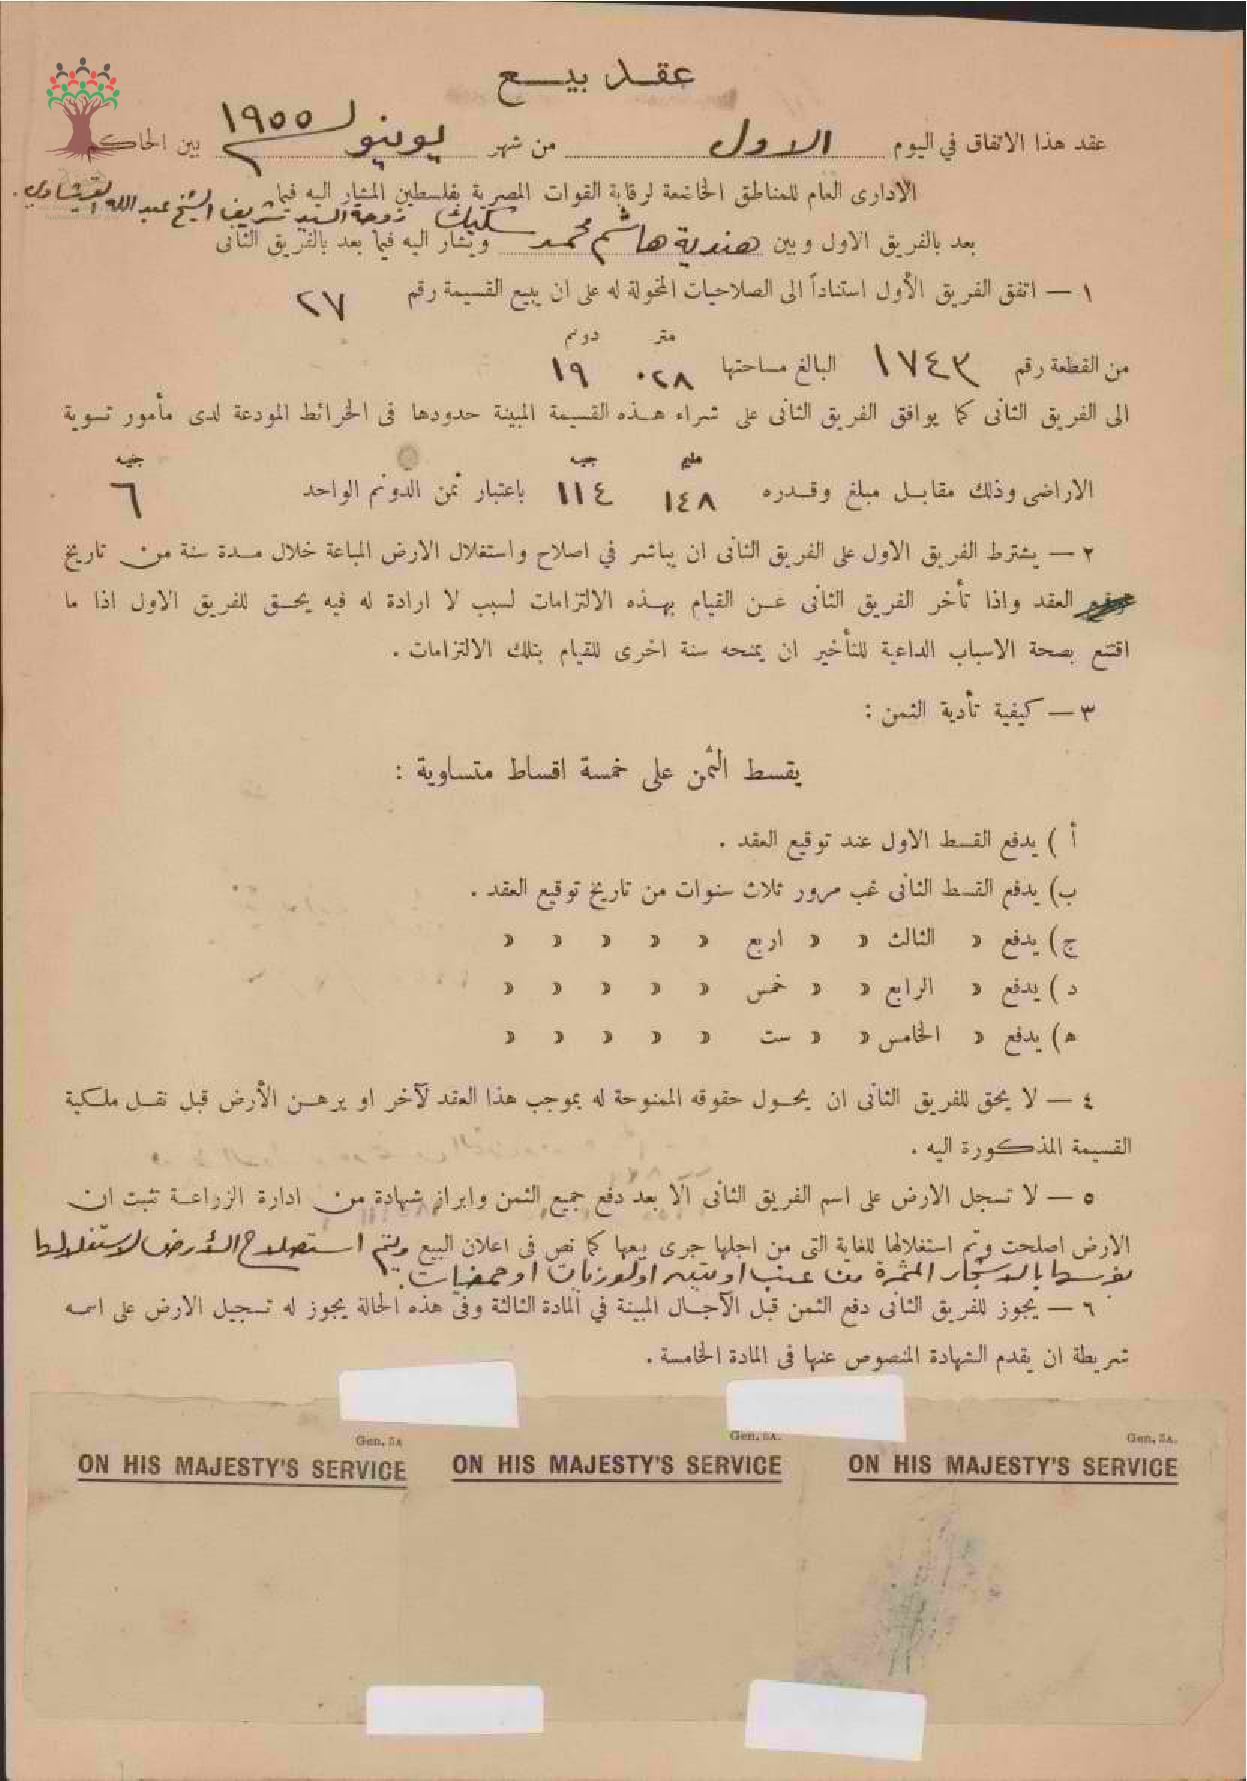 عقد بيع
عقد هذا الاتفاق في اليوم الاول من شهر يونيو ١٩٥٥ بين الحاكم
الادارى العام للمناطق الخاضعة لرقابة القوات المصرية بفلسطين المشار اليه فيما
بعد بالفريق الاول وبين هندية هاشم محمد سكيك زوجة السيد شريف الشيخ عبد الله القيشاوي. ويشار اليه فيما بعد بالفريق الثانى
١ — اتفق الفريق الأول استناداً الى الصلاحيات المخولة له على ان يبيع القسيمة رقم ٢٧
متر دونم
من القطعة رقم ١٧٤٣ البالغ مساحتها ٠٢٨ ١٩
الى الفريق الثانى كما يوافق الفريق الثانى على شراء هذه القسيمة المبينة حدودها فى الخرائط المودعة لدى مأمور تسوية
مليم جنيه جنيه
الاراضى وذلك مقابل مبلغ وقدره ١٤٨ ١١٤ باعتبار ثمن الدونم الواحد ٦
٢ — يشترط الفريق الاول على الفريق الثانى ان يباشر في اصلاح واستغلال الارض المباعة خلال مدة سنة من تاريخ
العقد واذا تأخر الفريق الثانى عن القيام بهذه الالتزامات لسبب لا ارادة له فيه يحق للفريق الاول اذا ما
اقتنع بصحة الاسباب الداعية للتأخير ان يمنحه سنة اخرى للقيام بتلك الالتزامات .
٣ — كيفية تأدية الثمن :
يقسط الثمن على خمسة اقساط متساوية :
أ ) يدفع القسط الاول عند توقيع العقد .
ب) يدفع القسط الثانى غب مرور ثلاث سنوات من تاريخ توقيع العقد .
ج) يدفع » الثالث » » اربع » » » » »
د ) يدفع » الرابع » » خمس » » » » »
ه) يدفع » الخامس » » ست » » » » »
٤ — لا يحق للفريق الثانى ان يحول حقوقه الممنوحة له بموجب هذا العقد لآخر او يرهن الأرض قبل نقل ملكية
القسيمة المذكورة اليه .
٥ — لا تسجل الارض على اسم الفريق الثانى الا بعد دفع جميع الثمن وابراز شهادة من ادارة الزراعة تثبت ان
الارض اصلحت وتم استغلالها للغاية التى من اجلها جرى بيعها كما نص فى اعلان البيع ويتم استصلاح الأرض لاستغلالها
بغرسها بالاشجار المثمرة من عنب او تين او لوزيات او حمضيات.
٦ — يجوز للفريق الثانى دفع الثمن قبل الآجال المبينة في المادة الثالثة وفى هذه الحالة يجوز له تسجيل الارض على اسمه
شريطة ان يقدم الشهادة المنصوص عنها فى المادة الخامسة .
Gen. 5A Gen. 5A. Gen. 5A.
ON HIS MAJESTY'S SERVICE ON HIS MAJESTY'S SERVICE ON HIS MAJESTY'S SERVICE